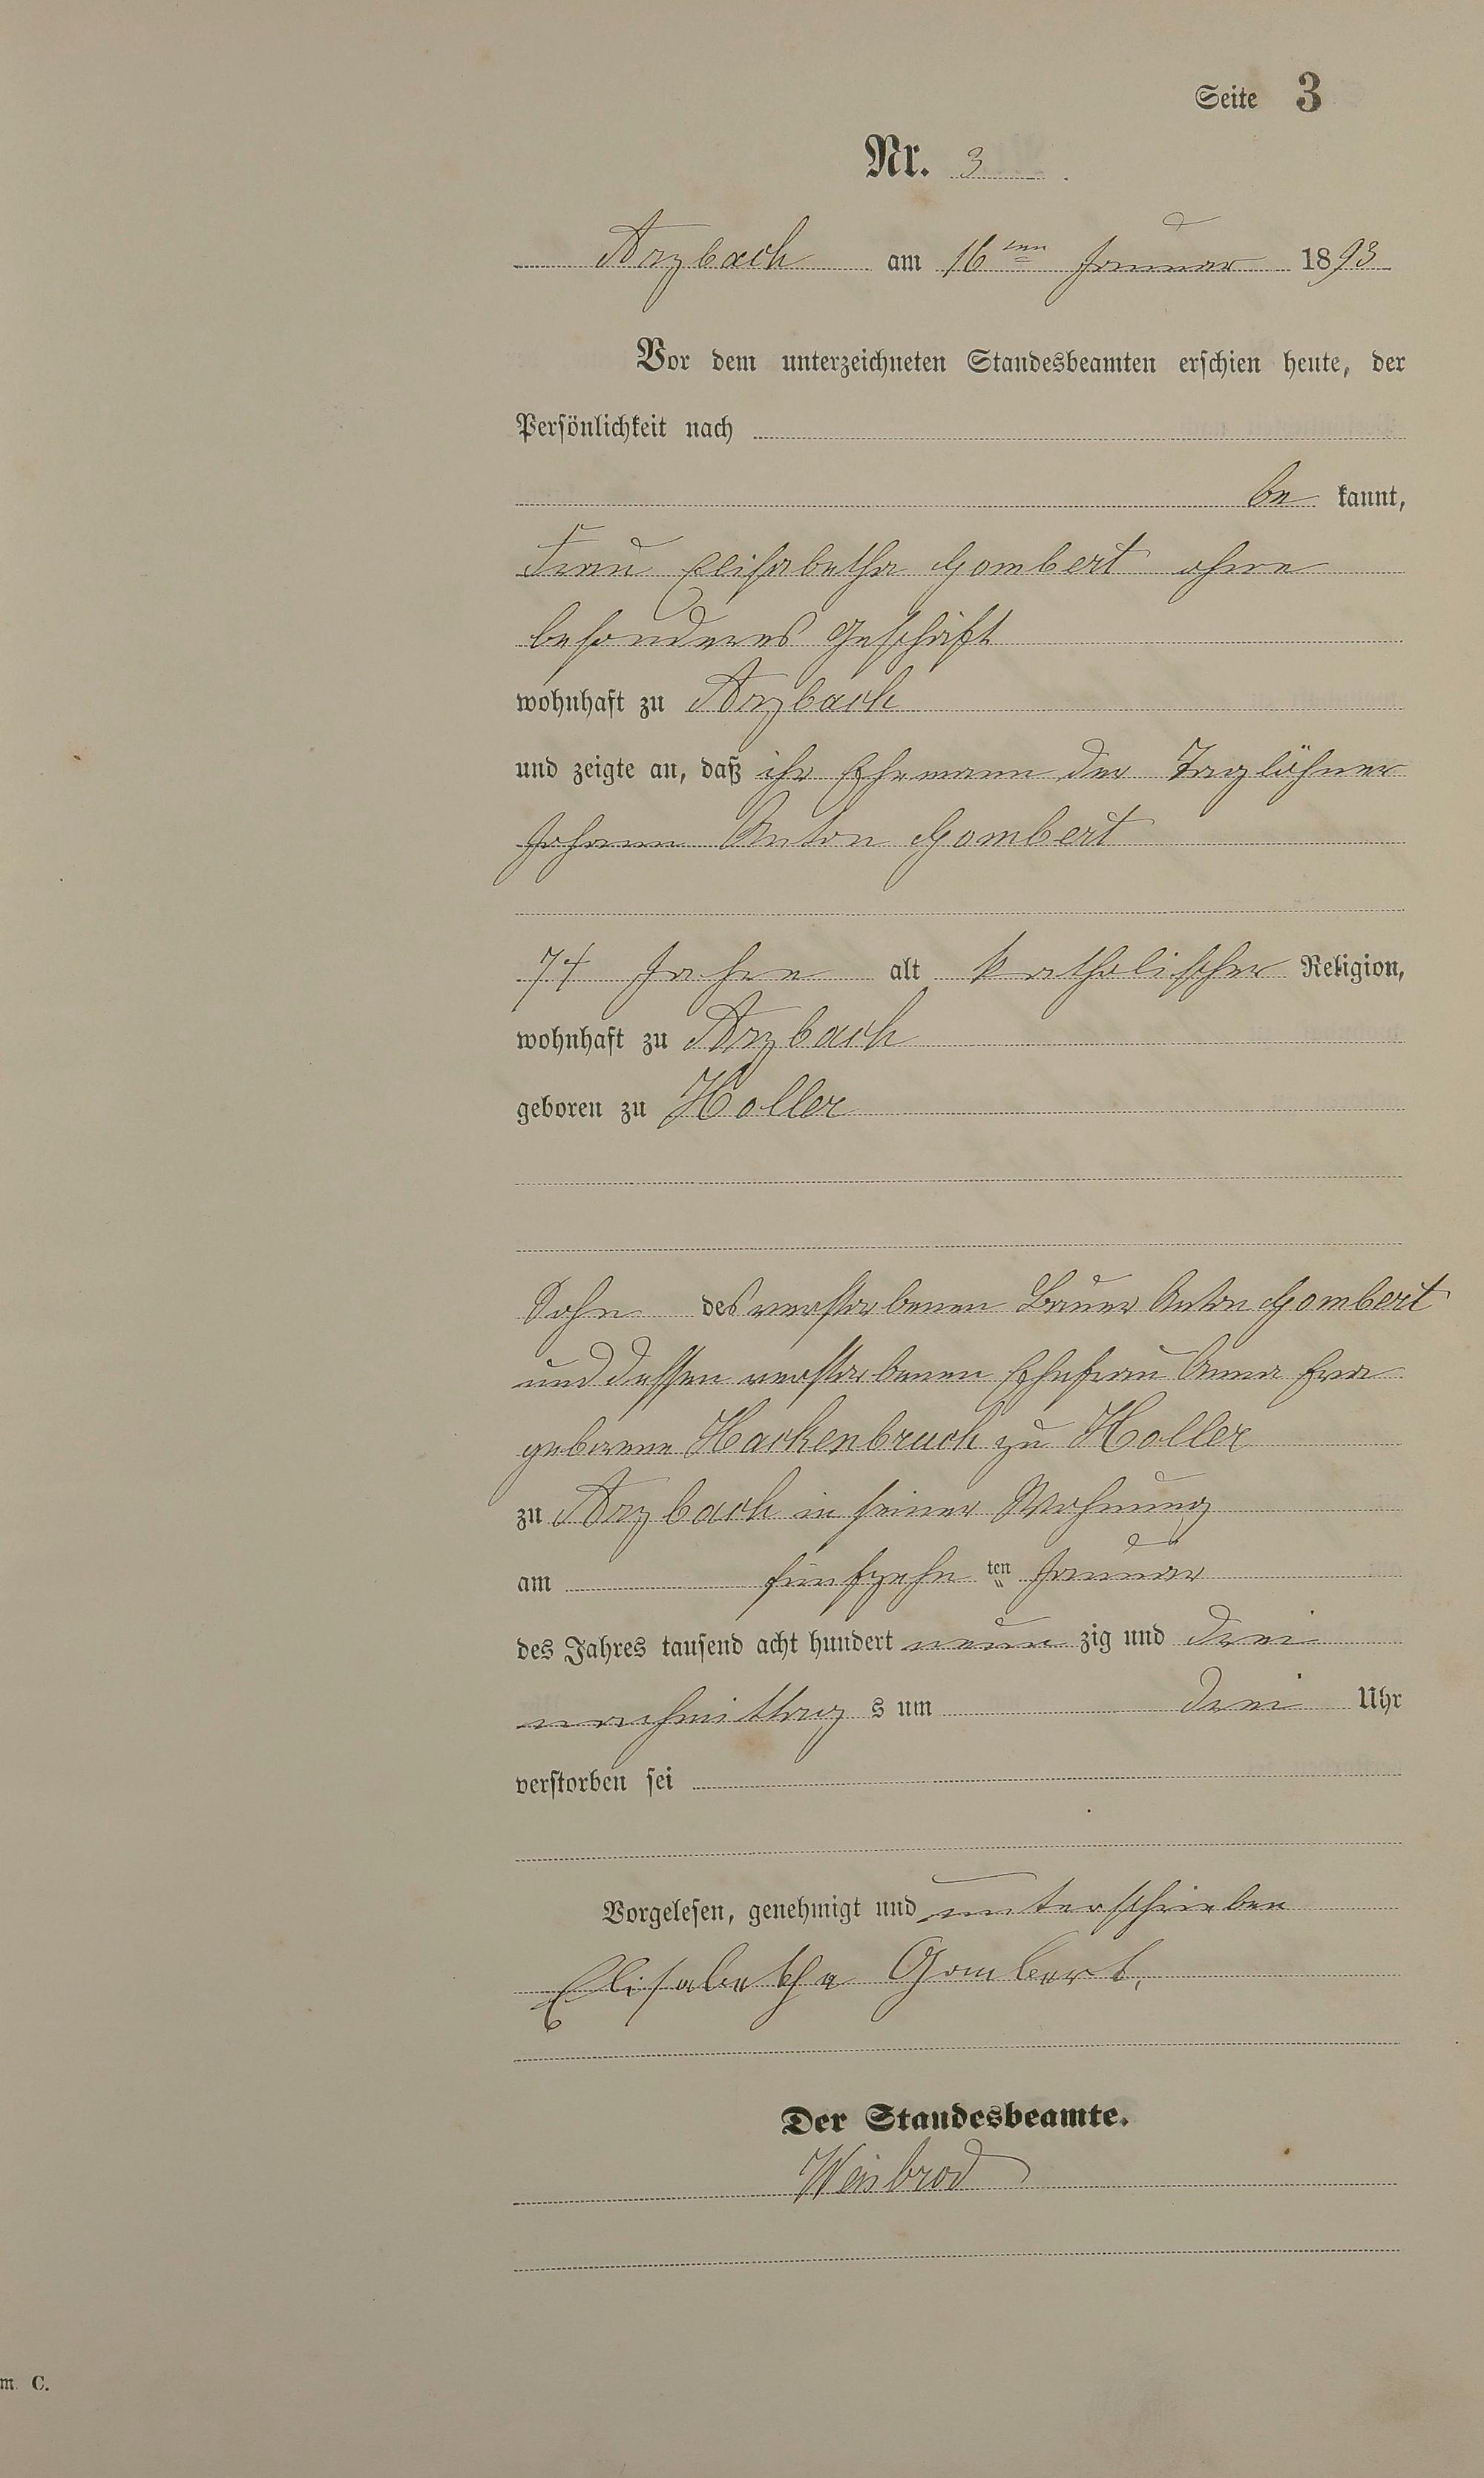 Seite 3
Nr. 3
Arzbach am 16ten Januar 1893
Vor dem unterzeichneten Standesbeamten erschien heute, der
Persönlichkeit nach
be kannt,
Frau Elisabetha Gombert ohne
besonderes Geschäft
wohnhaft zu Arzbach
und zeigte an, daß ihr Ehemann der Taglöhner
Johann Anton Gombert
74 Jahre alt katholischer Religion,
wohnhaft zu Arzbach
geboren zu Holler
Sohn des verstorbenen Bauer Anton Gombert
und dessen verstorbenen Ehefrau Anna Eva
geborene Hackenbruch zu Holler
zu Arzbach in seiner Wohnung
am fünfzehn ten Januar
des Jahres tausend acht hundert neun zig und drei
nachmittag s um drei Uhr
verstorben sei
Vorgelesen, genehmigt und unterschrieben
Elisabetha Gombert,
Der Standesbeamte.
Weisbrod
m. C.